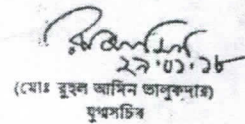 ২৭.০১.১৮
(মোঃ রুহুল আমিন তালুকদার)
যুগ্মসচিব